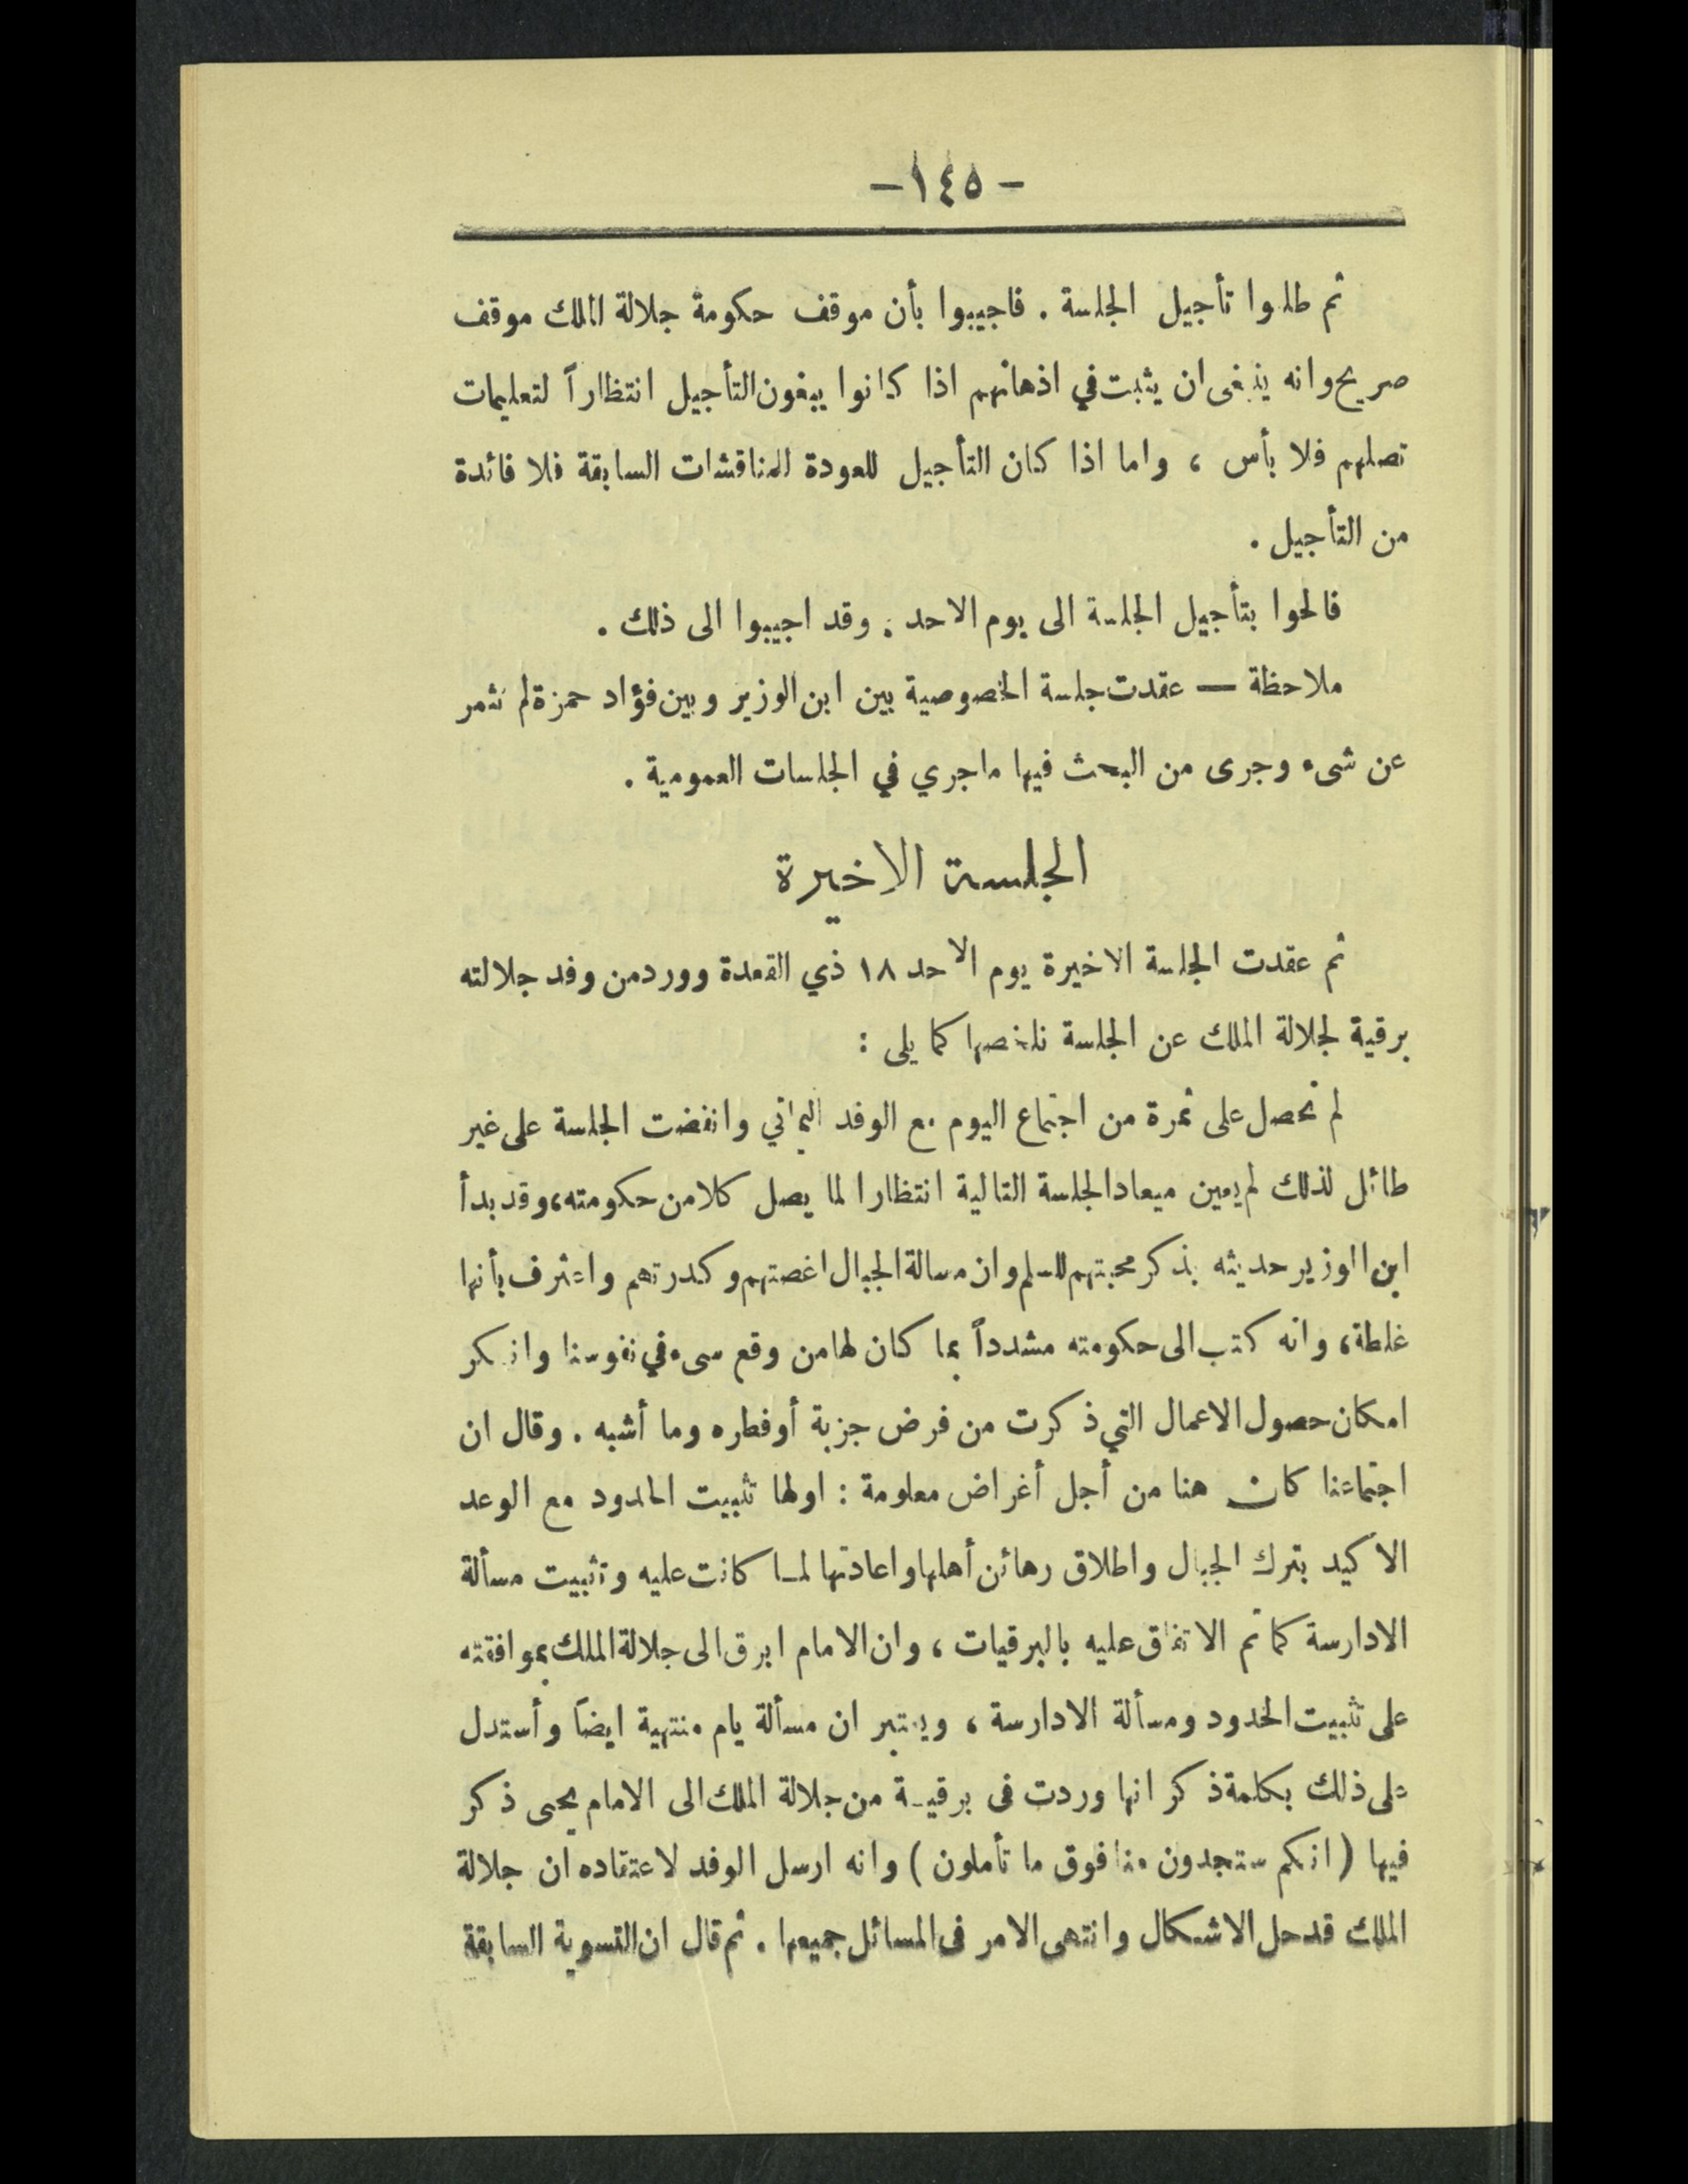 - ١٤٥ -
ثم طلبوا تأجيل الجلسة . فاجيبوا بأن موقف حكومة جلالة الملك موقف
صريح وانه ينبغى ان يثبت في اذهانهم اذا كانوا يبغون التأجيل انتظاراً لتعليمات
تصلهم فلا بأس ، واما اذا كان التأجيل للعودة للمناقشات السابقة فلا فائدة
من التأجيل .
فالحوا بتأجيل الجلسة الى يوم الاحد . وقد اجيبوا الى ذلك .
ملاحظة — عقدت جلسة الخصوصية بين ابن الوزير وبين فؤاد حمزة لم تثمر
عن شىء وجرى من البحث فيها ماجري في الجلسات العمومية .
الجلسة الاخيرة
ثم عقدت الجلسة الاخيرة يوم الاحد ١٨ ذي القعدة وورد من وفد جلالته
برقية لجلالة الملك عن الجلسة نلخصها كما يلى :
لم نحصل على ثمرة من اجتماع اليوم مع الوفد اليماني وانفضت الجلسة على غير
طائل لذلك لم يعين ميعاد الجلسة التالية انتظارا لما يصل كلا من حكومته ، وقد بدأ
ابن الوزير حديثه بذكر محبتهم للسلم وان مسالة الجبال اغصتهم وكدرتهم واعترف بأنها
غلطة ، وانه كتب الى حكومته مشدداً بما كان لها من وقع سىء في نفوسنا وانكر
امكان حصول الاعمال التي ذكرت من فرض جزية أو فطره وما أشبه . وقال ان
اجتماعنا كان هنا من أجل أغراض معلومة : اولها تثبيت الحدود مع الوعد
الاكيد بترك الجبال واطلاق رهائن أهلها واعادتها لما كانت عليه وتثبيت مسألة
الادارسة كما تم الاتفاق عليه بالبرقيات ، وان الامام ابرق الى جلالة الملك بموافقته
على تثبيت الحدود ومسألة الادارسة ، ويعتبر ان مسألة يام منتهية ايضاً وأستدل
على ذلك بكلمة ذكر انها وردت فى برقية من جلالة الملك الى الامام يحيى ذكر
فيها ( انكم ستجدون منا فوق ما تأملون ) وانه ارسل الوفد لاعتقاده ان جلالة
الملك قد حل الاشكال وانتهى الامر فى المسائل جميعها . ثم قال ان التسوية السابقة